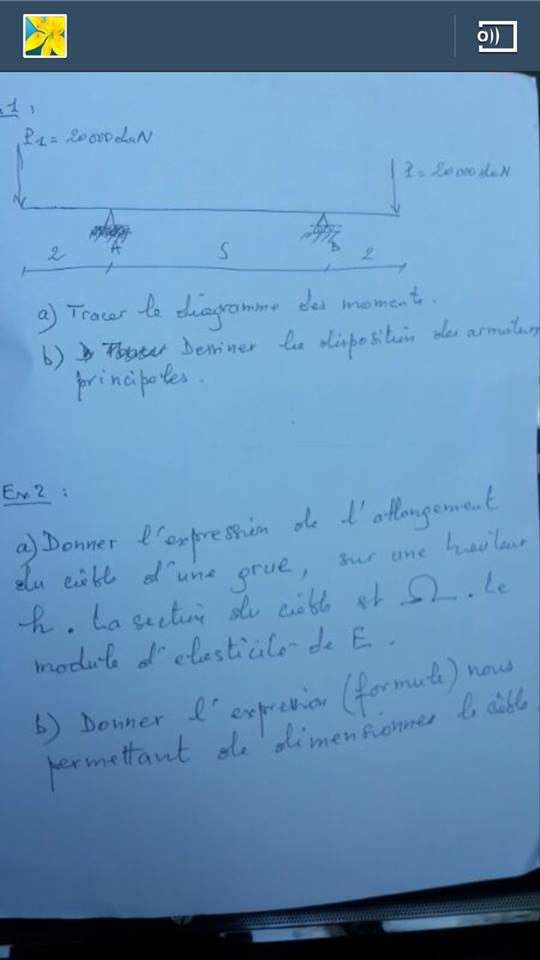 P1 = 20000 daN
P = 20000 daN
A
B
2
5
2
a) Tracer le diagramme des moments.
b) Dessiner la disposition des armatures
principales.
Ex 2 :
a) Donner l'expression de l'allongement
du câble d'une grue, sur une hauteur
h. La section du câble est Ω. Le
module d'élasticité de E.
b) Donner l'expression (formule) nous
permettant de dimensionner le câble.